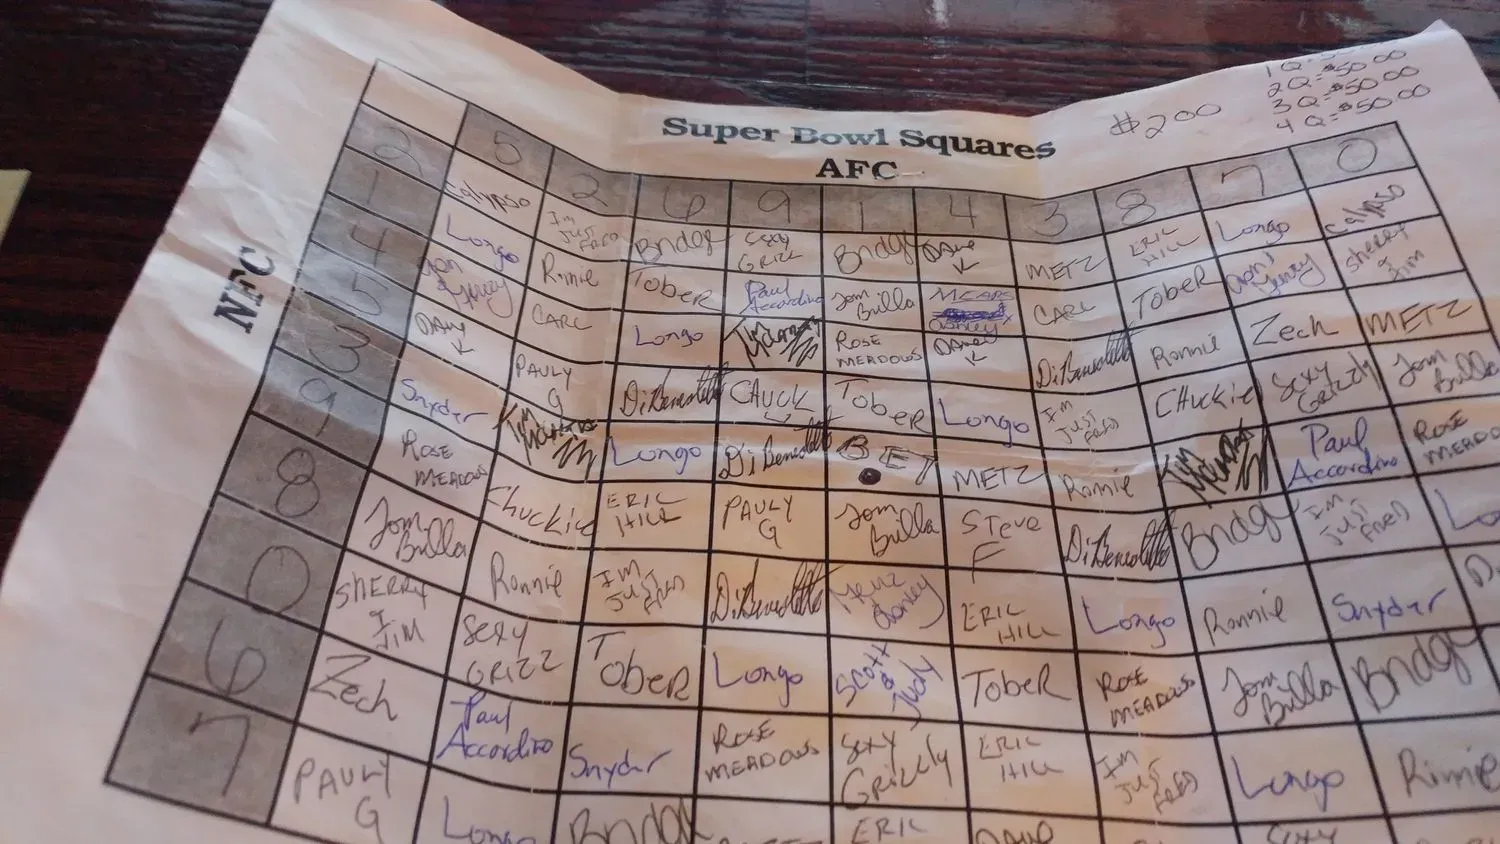 $200
2Q=$50 00
3Q=$50 00
4Q=$50 00
Super Bowl Squares
AFC
NFC
5 2 6 9 1 4 3 8 7 0
2 Calypso I'm Just Fred Bridge Sexy Grizz Bridge Dave V METZ ERIC HILL Longo Calypso
1 Longo Ronnie TOBER Paul Accordino Tom Brilla CARL TOBER Sherry & Jim
4 CARL Longo ROSE MEADOWS Dave V DiBenedetto Ronnie Zech METZ
5 DAVE V PAULY G DiBenedetto CHUCK TOBER Longo I'm Just Fred CHuckie Sexy Grizzly Tom Brilla
3 Snyder Longo DiBenedetto BET METZ Ronnie Paul Accordino ROSE MEADOWS
9 ROSE MEADOWS Chuckie ERIC HILL PAULY G Tom Brilla STEVE F DiBenedetto Bridge I'm Just Fred
8 Tom Brilla Ronnie I'm Just Fred DiBenedetto ERIC HILL Longo Ronnie Snyder
0 SHERRY & JIM Sexy GRIZZ TOBER Longo Scott & Judy TOBER ROSE MEADOWS Tom Brilla Bridge
6 Zech Paul Accordino Snyder ROSE MEADOWS Sexy Grizzly ERIC HILL I'm Just Fred Longo Ronnie
7 PAULY G Longo Bridge ERIC DAVE SEXY